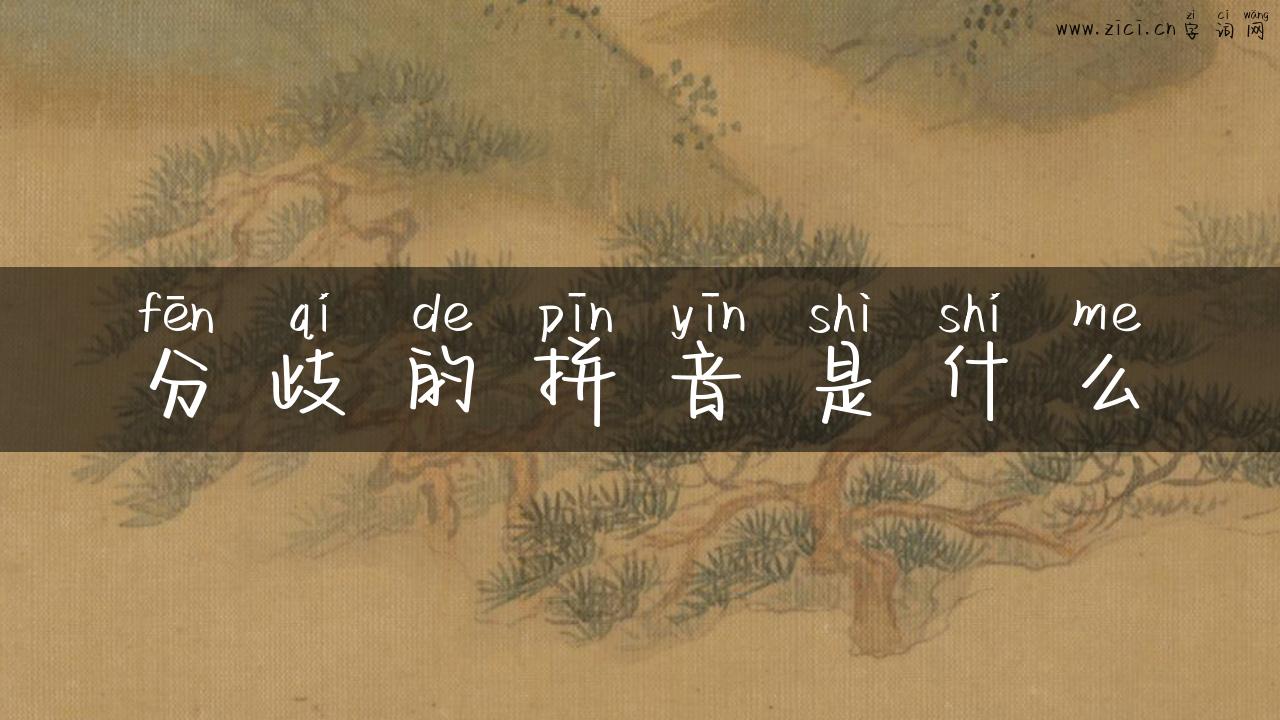 zì cí wǎng
www.zici.cn 字 词 网
fēn qí de pīn yīn shì shí me
分 歧 的 拼 音 是 什 么